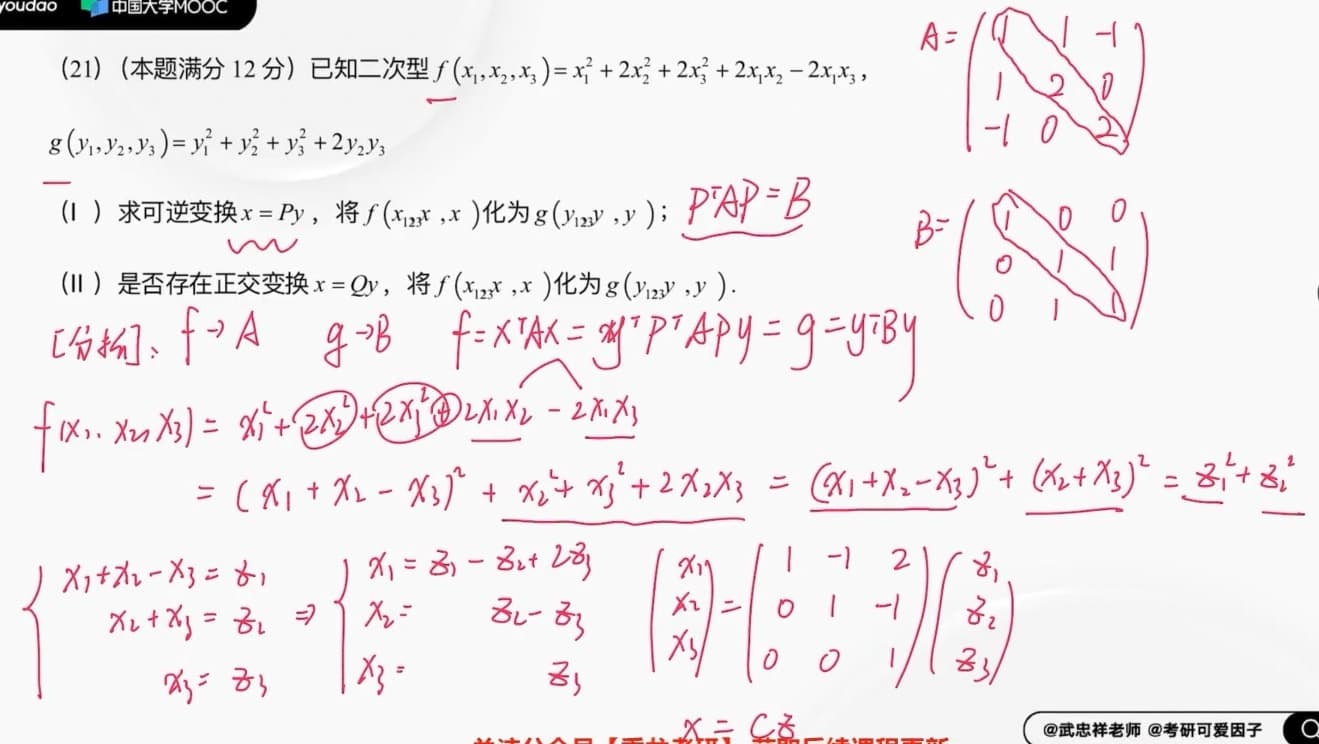 youdao 中国大学MOOC
(21)(本题满分 12 分)已知二次型 f(x₁,x₂,x₃)=x₁²+2x₂²+2x₃²+2x₁x₂−2x₁x₃,
g(y₁,y₂,y₃)=y₁²+y₂²+y₃²+2y₂y₃
(Ⅰ)求可逆变换 x=Py,将 f(x₁₂₃x ,x )化为 g(y₁₂₃y ,y );
PᵀAP=B
(Ⅱ)是否存在正交变换 x=Qy,将 f(x₁₂₃x ,x )化为 g(y₁₂₃y ,y ).
A= ( 1 1 -1
1 2 0
-1 0 2 )
B= ( 1 0 0
0 1 1
0 1 1 )
[分析]、f→A g→B f=xᵀAx= yᵀPᵀAPy=g=yᵀBy
f(x₁,x₂,x₃)= x₁²+2x₂²+2x₃²+2x₁x₂-2x₁x₃
=(x₁+x₂-x₃)²+x₂²+x₃²+2x₂x₃ = (x₁+x₂-x₃)²+(x₂+x₃)² = z₁²+z₂²
{ x₁+x₂-x₃=z₁
x₂+x₃=z₂
x₃=z₃
⇒ { x₁=z₁-z₂+2z₃
x₂= z₂-z₃
x₃= z₃
( x₁ x₂ x₃ ) = ( 1 -1 2
0 1 -1
0 0 1 ) ( z₁ z₂ z₃ )
x=Cz
@武忠祥老师 @考研可爱因子